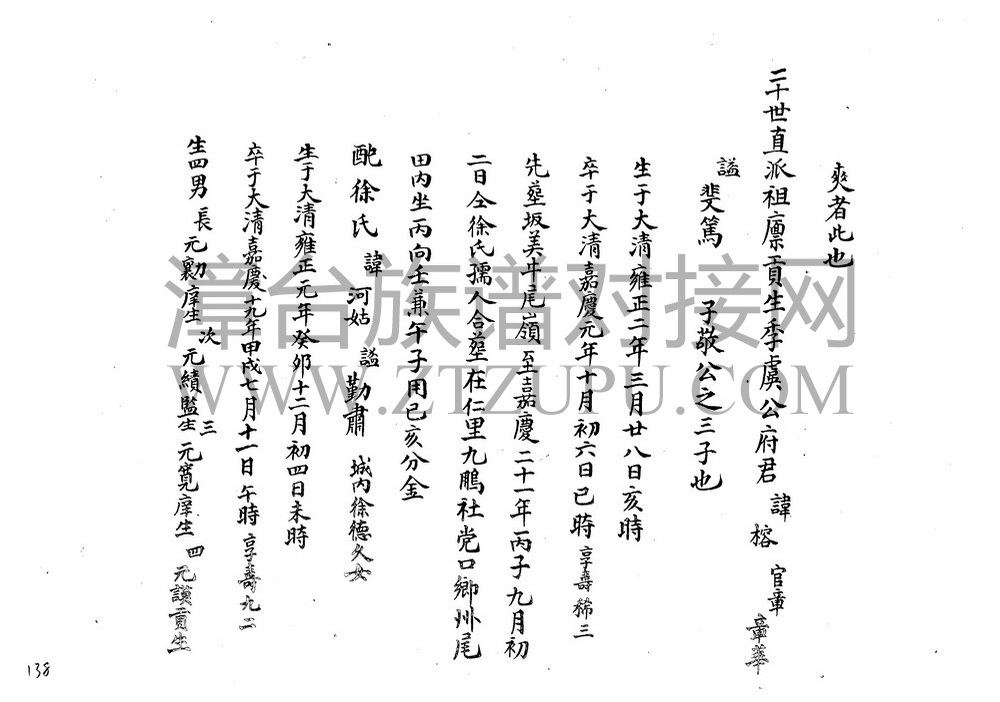 爽者此也
二十世直派祖廪貢生季虞公府君 諱榕 官章 章華
諡 斐篤 子敬公之三子也
生于大清雍正二年三月廿八日亥時
卒于大清嘉慶元年十月初六日巳時 享壽 三
先塟坂美牛尾嶺至嘉慶二十一年丙子九月初
二日仝徐氏孺人合塟在仁里九鵬社党口鄉州尾
田内坐丙向壬兼午子用己亥分金
配徐氏 諱河姑 諡勤肅 城内徐德久女
生于大清雍正元年癸卯十二月初四日未時
卒于大清嘉慶十九年甲戌七月十一日午時 享壽九二
生四男 長元勷庠生 次元績監生 三元寬庠生 四元讃貢生
138
漳台族谱对接网
WWW.ZTZUPU.COM